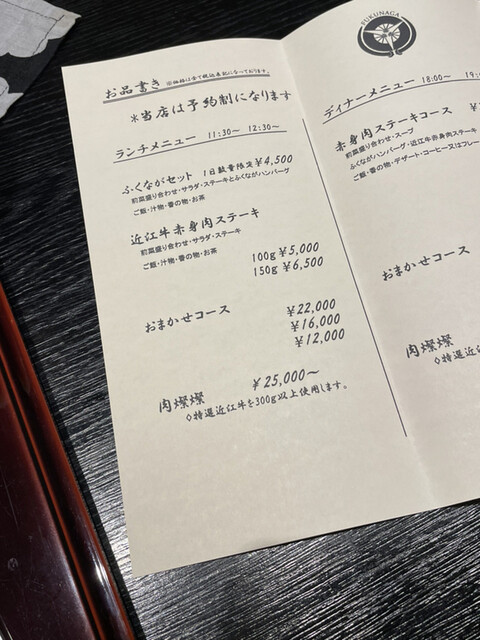 お品書き ※価格は全て税込表記になっております。
*当店は予約制になります
ランチメニュー 11:30〜 12:30〜
ふくながセット 1日数量限定 ¥4,500
前菜盛り合わせ・サラダ・ステーキとふくながハンバーグ
ご飯・汁物・香の物・お茶
近江牛赤身肉ステーキ
前菜盛り合わせ・サラダ・ステーキ
ご飯・汁物・香の物・お茶
100g ¥5,000
150g ¥6,500
おまかせコース
¥22,000
¥16,000
¥12,000
肉燦燦 ¥25,000〜
◇特選近江牛を300g以上使用します。
FUKUNAGA
ディナーメニュー 18:00〜
赤身肉ステーキコース
前菜盛り合わせ・スープ
ふくながハンバーグ・近江牛赤身肉ステーキ
ご飯・香の物・デザート・コーヒー又はフレー
おまかせコース
肉燦燦
◇特選近江